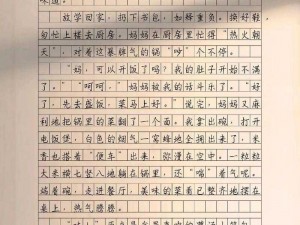 味道。
放学回家，扔下书包，如蜂重负。换好鞋，
匆忙上楼去厨房。妈妈在厨房里忙得“热火朝
天”，对着这暴脾气的锅“吵”个不停。
“妈，可以开饭了吗？我的肚子开始不满
了。”“呵呵，”妈妈被我的话斗乐了！“好
了，先去盛饭，菜马上好。”说完，妈妈又麻
利地把锅里的菜翻了个面。我拿出碗，打开
电饭煲，白色的烟气一窝蜂地全拥出来了，米
香也搭着“便车”出来，弥漫在空中。一粒粒
大米横七竖八地躺在锅里，还“喘”着气呢。
端着碗，走进餐厅，美味的菜肴已整齐地摆在
桌上，热气腾腾。